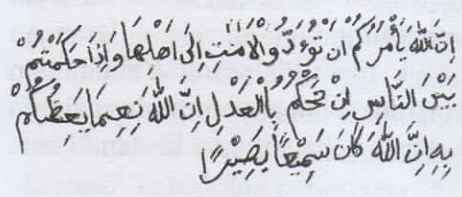 اِنَّ اللهَ يَأْمُرُكُمْ اَنْ تُؤَدُّ والْاَمَنَتِ اِلَى اَهْلِهَا وَاِذَا حَكَمْتُمْ
بَيْنَ النَّاسِ اِنْ تَحْكُمُ بِالْعَدْلِ اِنَّ اللهَ نِعِمَا يَعِظُكُمْ
بِهِ اِنَّ اللهَ كَانَ سَمِيْعًا بَصِيْرًا